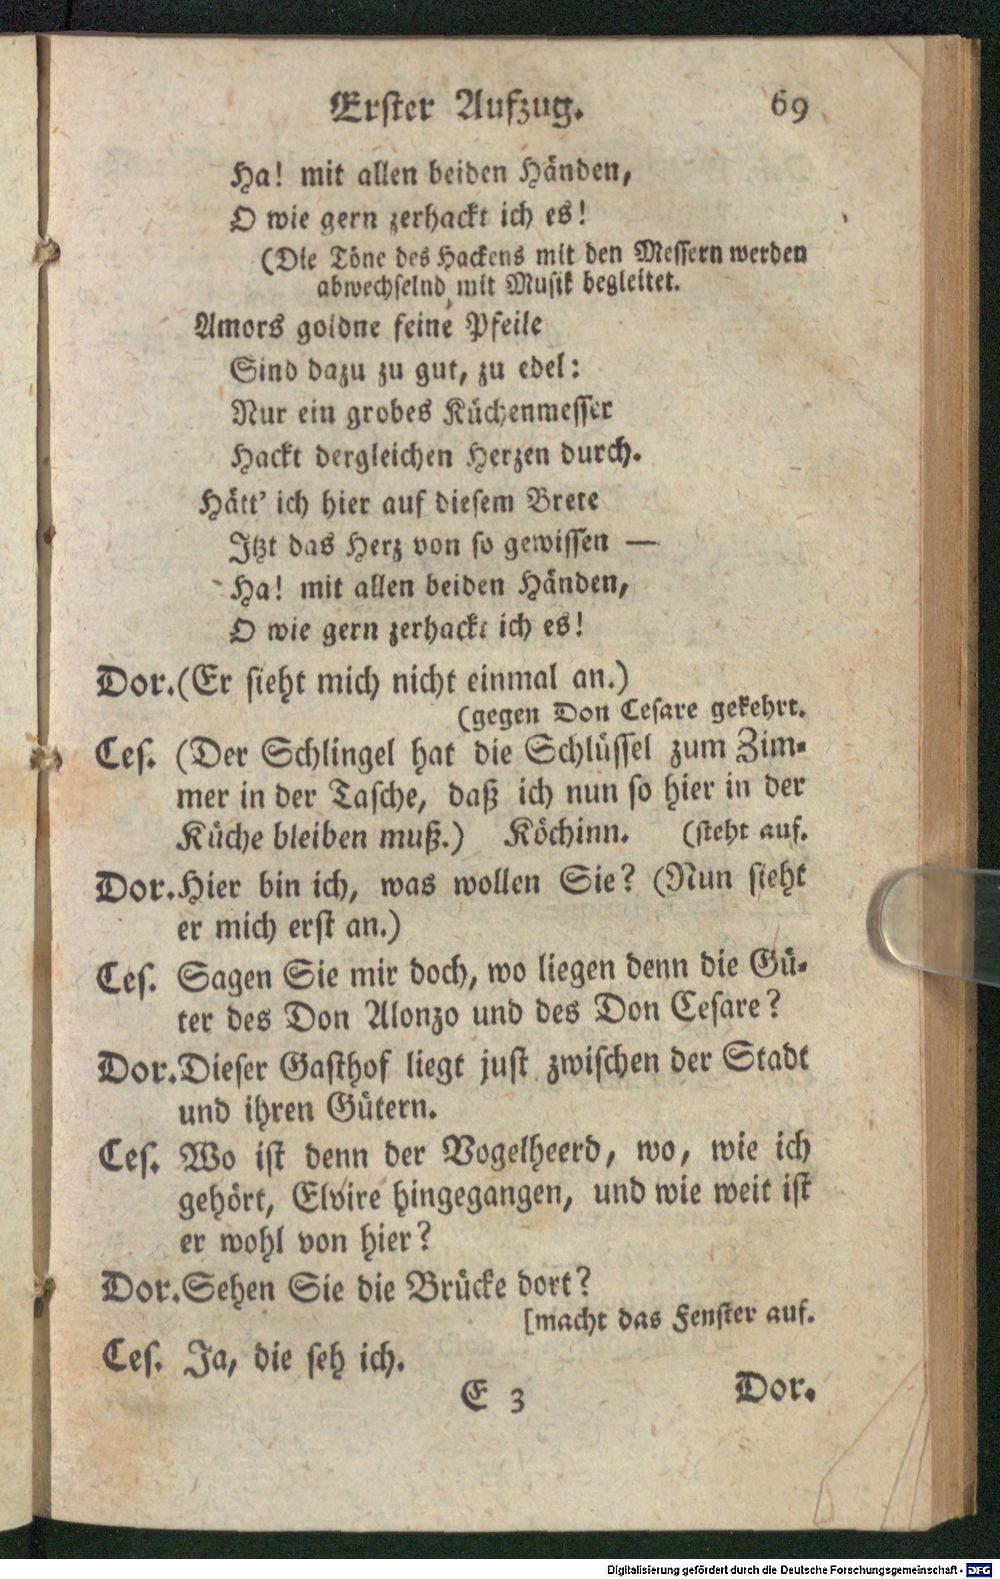 Erster Aufzug. 69
Ha! mit allen beiden Händen,
O wie gern zerhackt ich es!
(Die Töne des Hackens mit den Messern werden
abwechselnd mit Musik begleitet.
Amors goldne feine Pfeile
Sind dazu zu gut, zu edel:
Nur ein grobes Küchenmesser
Hackt dergleichen Herzen durch.
Hätt' ich hier auf diesem Brete
Itzt das Herz von so gewissen —
Ha! mit allen beiden Händen,
O wie gern zerhackt ich es!
Dor. (Er sieht mich nicht einmal an.)
(gegen Don Cesare gekehrt.
Ces. (Der Schlingel hat die Schlüssel zum Zim-
mer in der Tasche, daß ich nun so hier in der
Küche bleiben muß.) Köchinn. (steht auf.
Dor. Hier bin ich, was wollen Sie? (Nun sieht
er mich erst an.)
Ces. Sagen Sie mir doch, wo liegen denn die Gü-
ter des Don Alonzo und des Don Cesare?
Dor. Dieser Gasthof liegt just zwischen der Stadt
und ihren Gütern.
Ces. Wo ist denn der Vogelheerd, wo, wie ich
gehört, Elvire hingegangen, und wie weit ist
er wohl von hier?
Dor. Sehen Sie die Brücke dort?
[macht das Fenster auf.
Ces. Ja, die seh ich.
E 3 Dor.
Digitalisierung gefördert durch die Deutsche Forschungsgemeinschaft - DFG